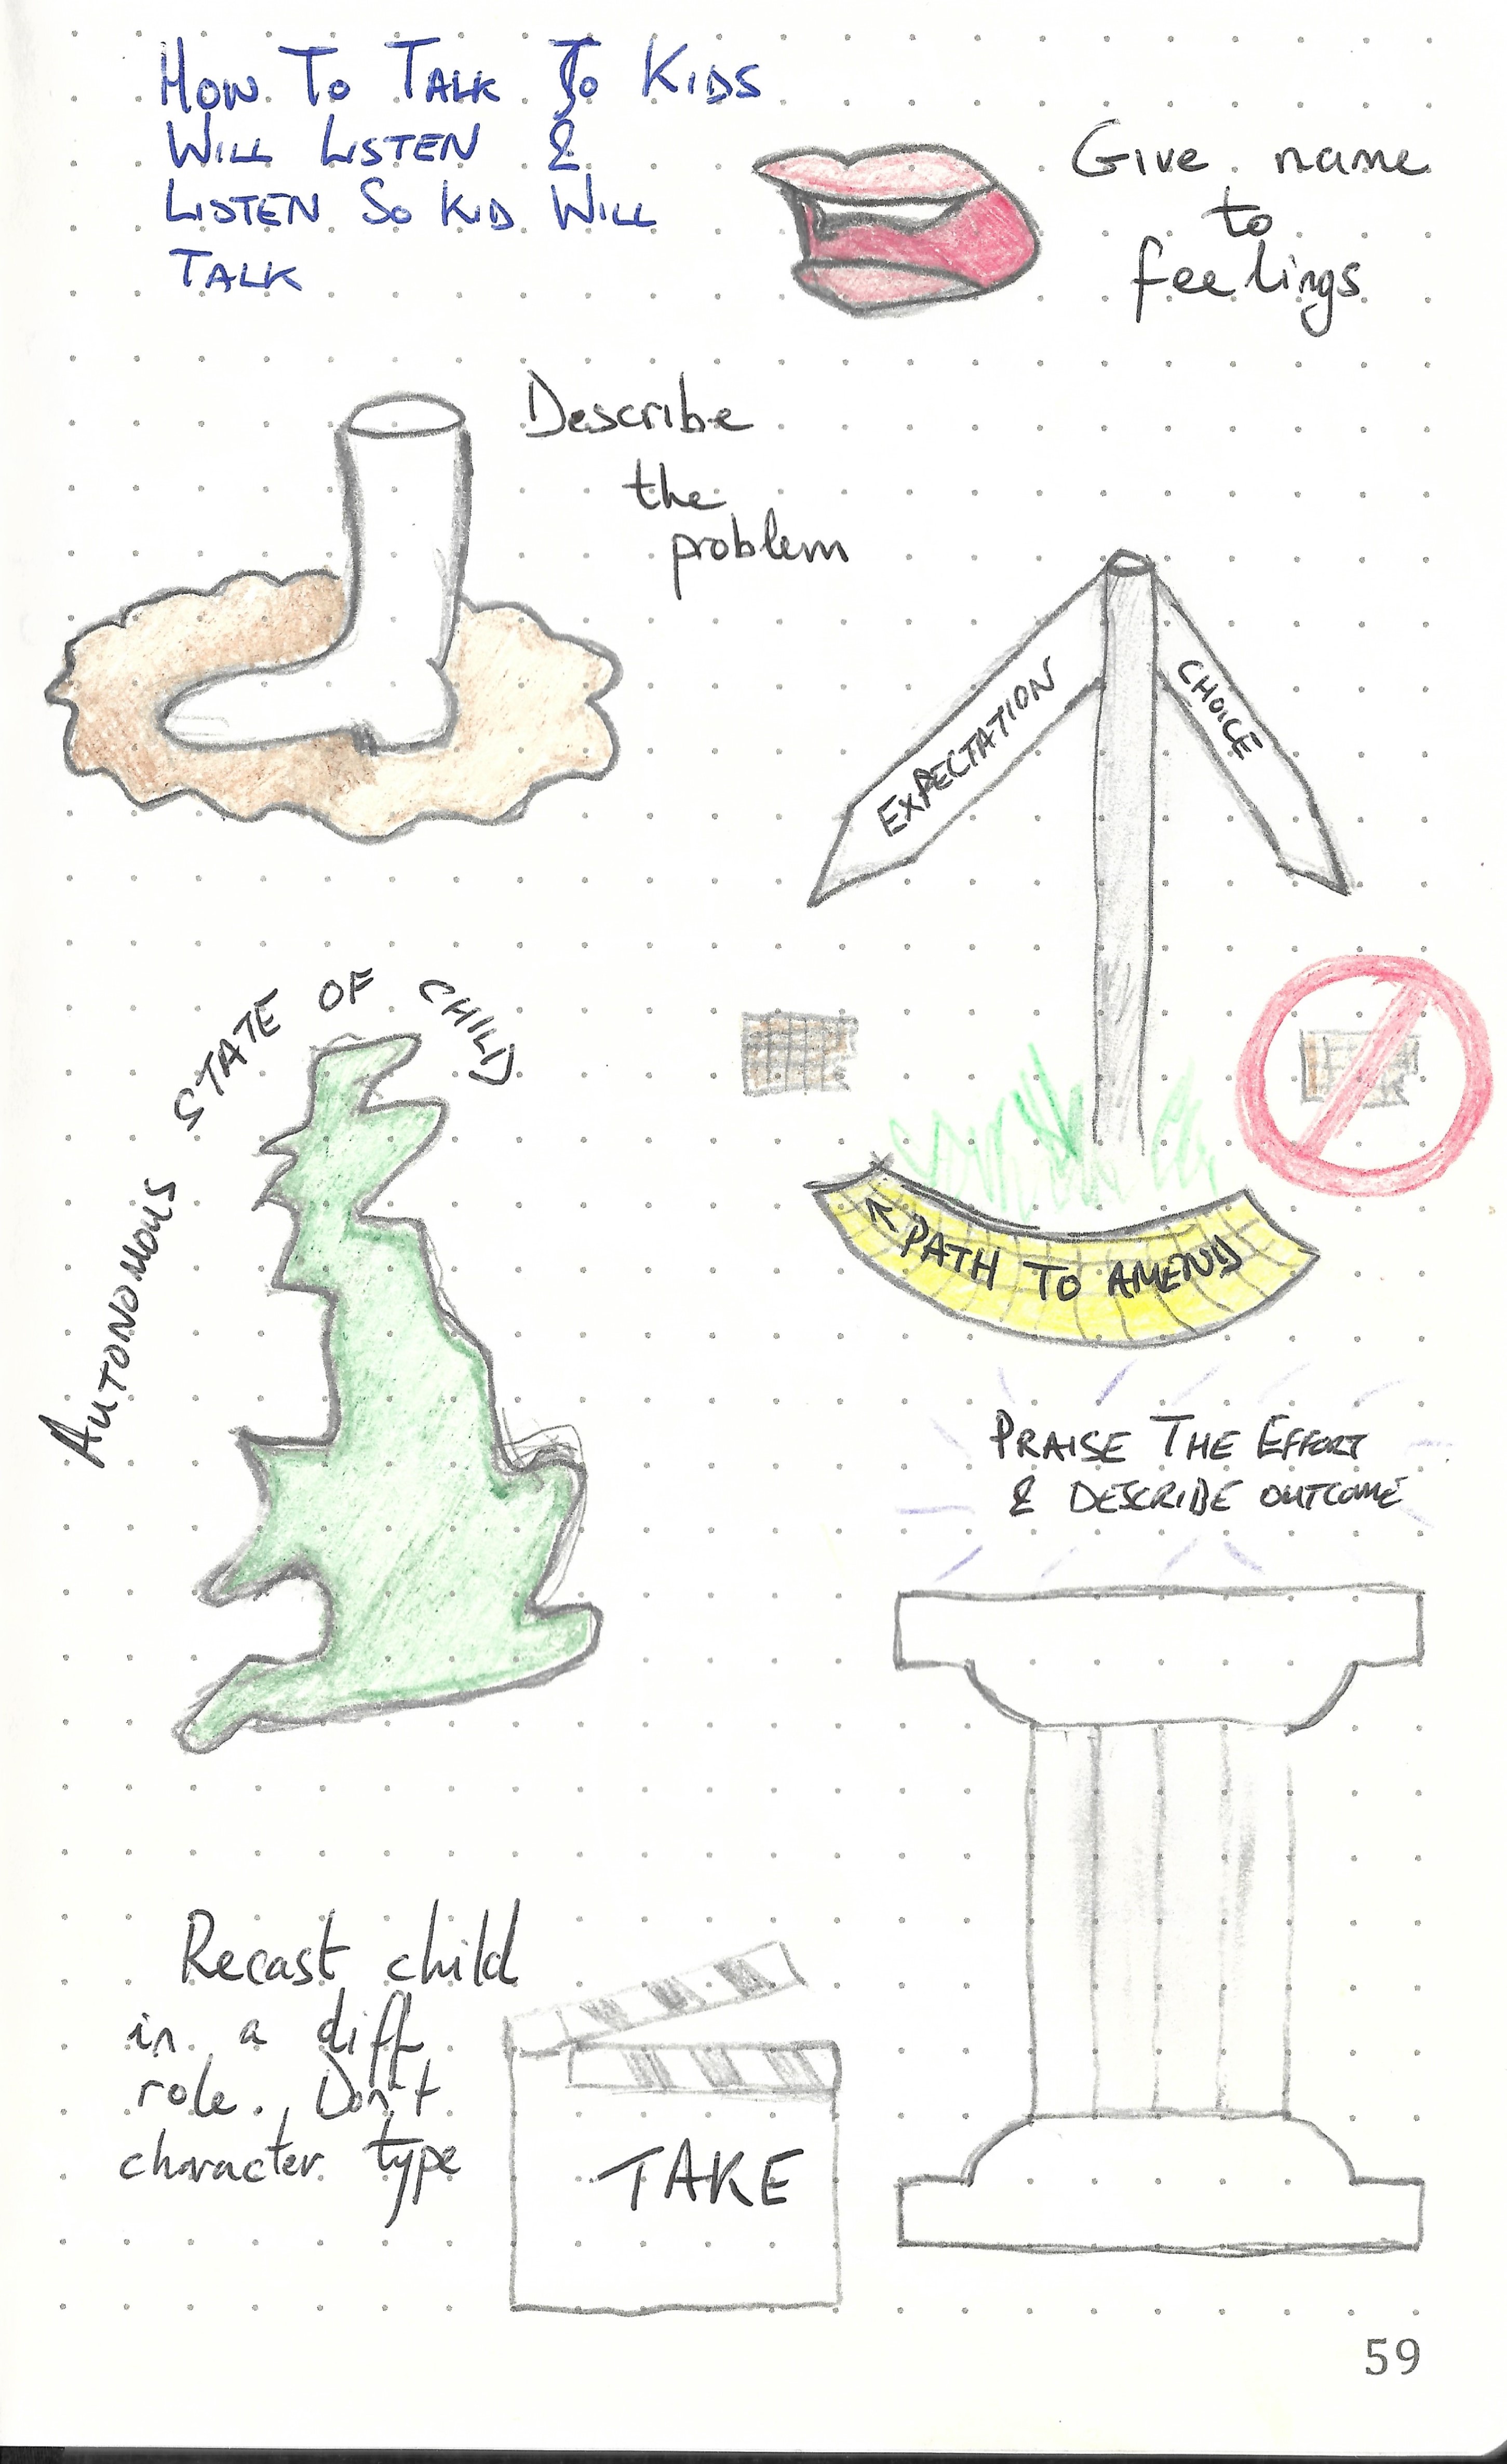 HOW TO TALK SO KIDS
WILL LISTEN &
LISTEN SO KID WILL
TALK
Give name
to
feelings
Describe
the
problem
EXPECTATION
CHOICE
AUTONOMOUS STATE OF CHILD
↑ PATH TO AMEND
PRAISE THE EFFORT
& DESCRIBE OUTCOME
Recast child
in a diff
role. Don't
character type
TAKE
59